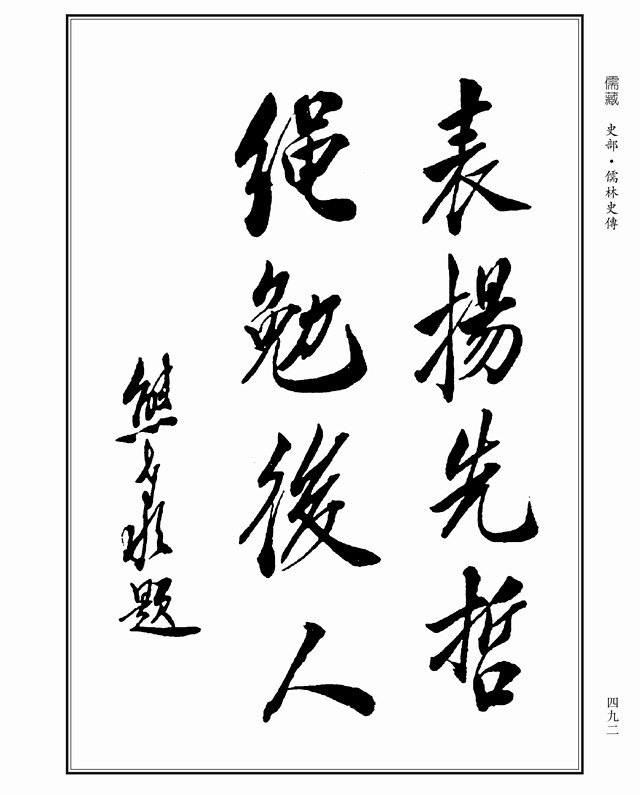 儒藏 史部・儒林史傳
四九二
表揚先哲
绳勉後人
熊題